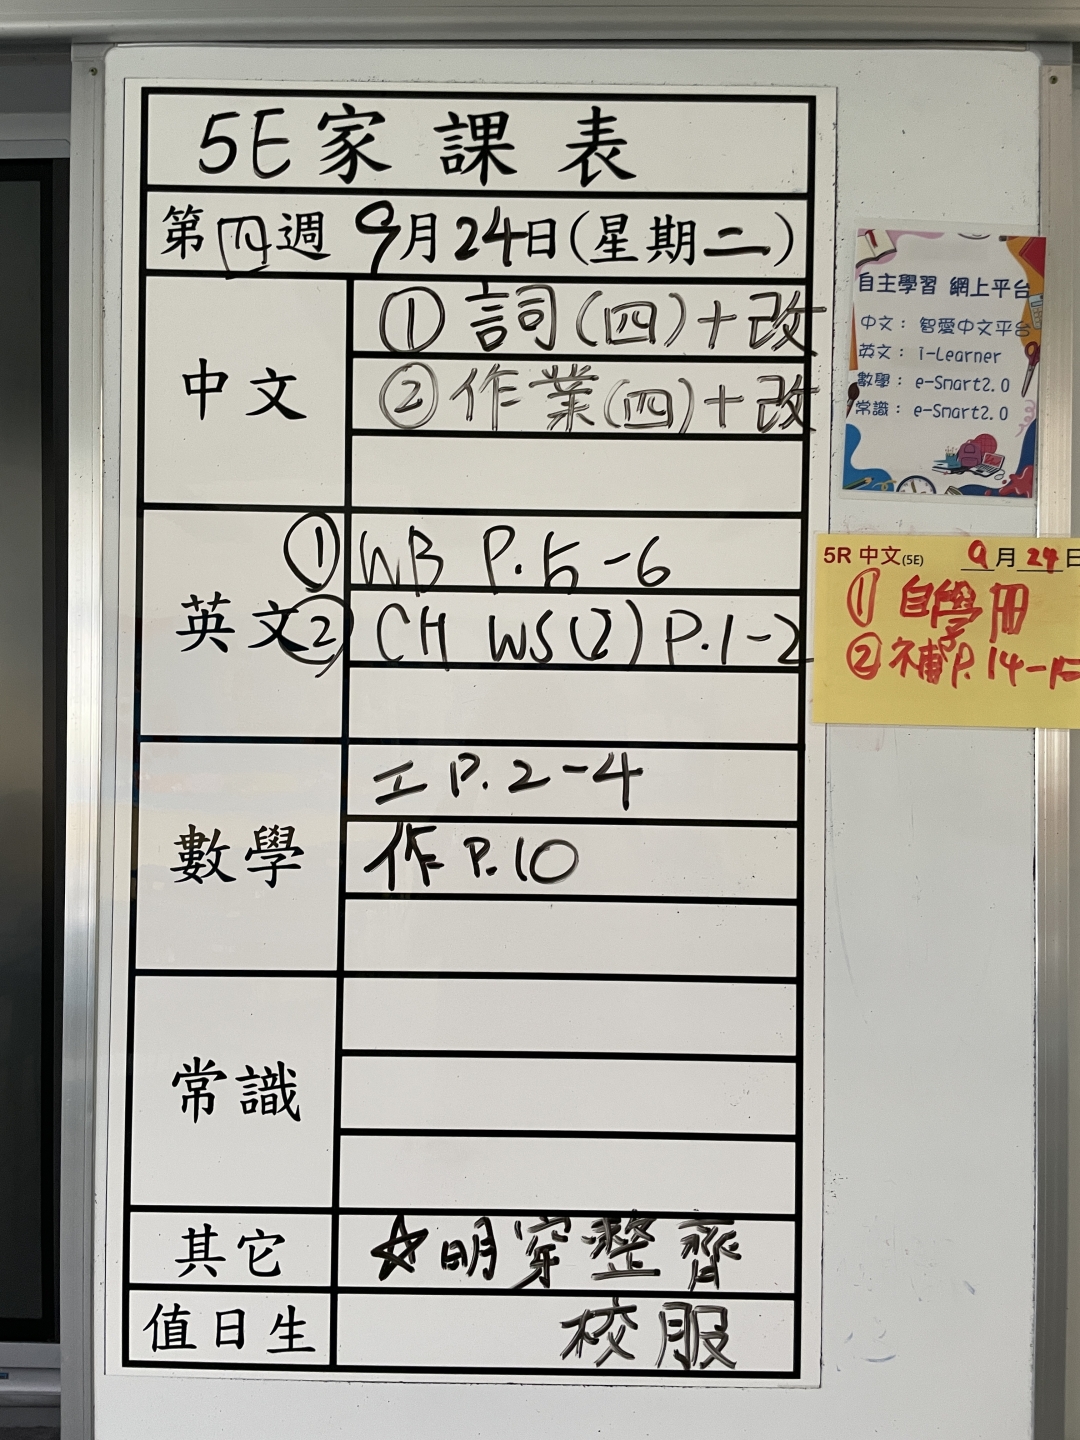 5E家課表
第四週 9月24日(星期二)
中文
①詞(四)+改
②作業(四)+改
英文
①WB P.5-6
②CH WS(2) P.1-2
數學
工P.2-4
作P.10
常識
其它
☆明穿整齊
值日生
校服
自主學習 網上平台
中文：智愛中文平台
英文：i-Learner
數學：e-Smart2.0
常識：e-Smart2.0
5R 中文(5E) 9月24日
①自學冊
②補P.14-15